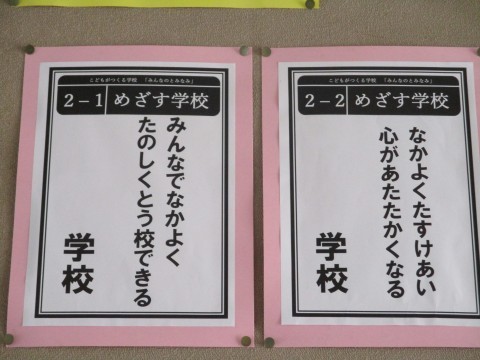 こどもがつくる学校 「みんなのとみなみ」
2－1 めざす学校
みんなでなかよく
たのしくとう校できる
学校
こどもがつくる学校 「みんなのとみなみ」
2－2 めざす学校
なかよくたすけあい
心があたたかくなる
学校